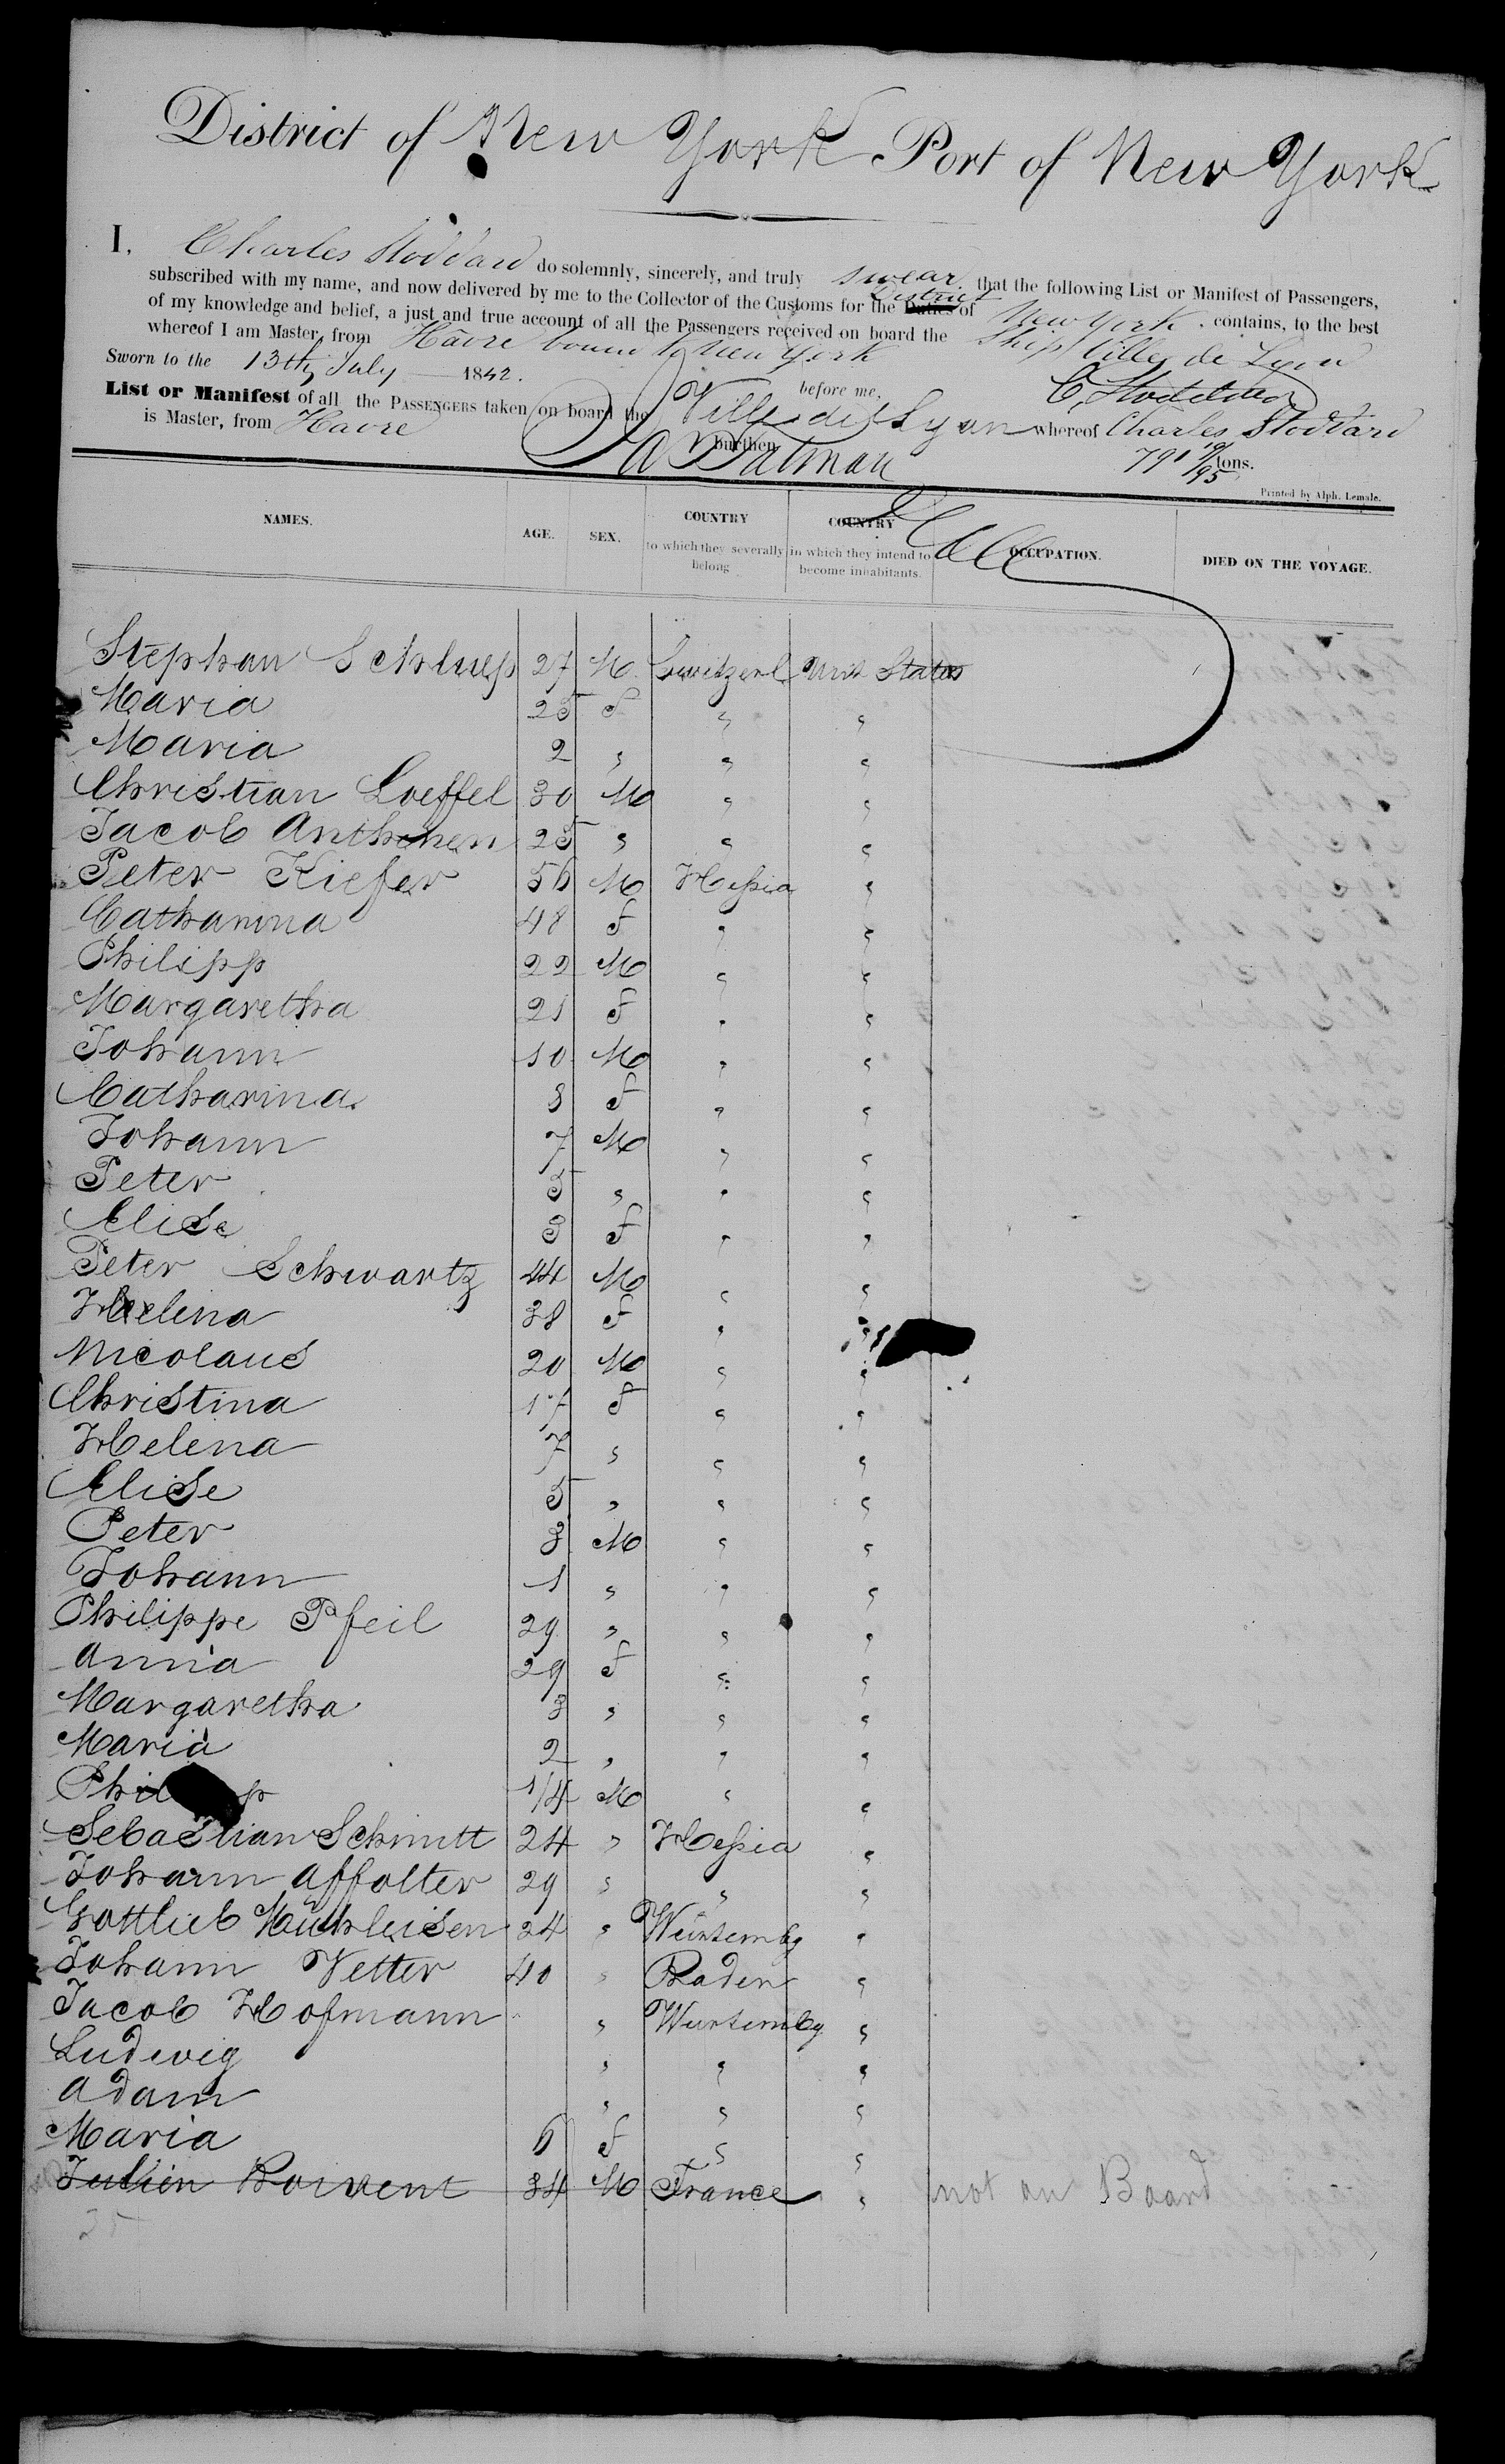 District of New York Port of New York
I, Charles Stoddard do solemnly, sincerely, and truly swear that the following List or Manifest of Passengers,
subscribed with my name, and now delivered by me to the Collector of the Customs for the Duties District of New York, contains, to the best
of my knowledge and belief, a just and true account of all the Passengers received on board the Ship Ville de Lyon
whereof I am Master, from Havre bound to New York
Sworn to the 13th July 1842. before me, C. Stoddard
List or Manifest of all the PASSENGERS taken on board the Ville de Lyon whereof Charles Stoddard
is Master, from Havre burthen 791 tons.
Printed by Alph. Lemale.
NAMES. AGE. SEX. COUNTRY to which they severally belong COUNTRY in which they intend to become inhabitants. OCCUPATION. DIED ON THE VOYAGE.
Stephan Schluep 27 M. Switzerl. Unit States
Maria 25 f " "
Maria 2 " " "
Christian Loeffel 30 M " "
Jacob Anthenen 25 " " "
Peter Kiefer 56 M Hessia "
Catharina 48 f " "
Philipp 22 M " "
Margaretha 21 f " "
Johann 10 M " "
Catharina 8 f " "
Johann 7 M " "
Peter 5 " " "
Elise 3 f " "
Peter Schwartz 44 M " "
Helena 38 f " "
Nicolaus 20 M " "
Christina 17 f " "
Helena 7 " " "
Elise 5 " " "
Peter 3 M " "
Johann 1 " " "
Philippe Pfeil 29 " " "
Anna 29 f " "
Margaretha 3 " " "
Maria 2 " " "
Philipp 1/4 M " "
Sebastian Schmitt 24 " Hessia "
Johann Affolter 29 " " "
Gottlieb Mühleisen 24 " Würtembg "
Johann Vetter 40 " Baden "
Jacob Hofmann " Würtembg "
Ludwig " " "
Adam " " "
Maria 6 f " "
Julien Boivent 34 M France " not on Board